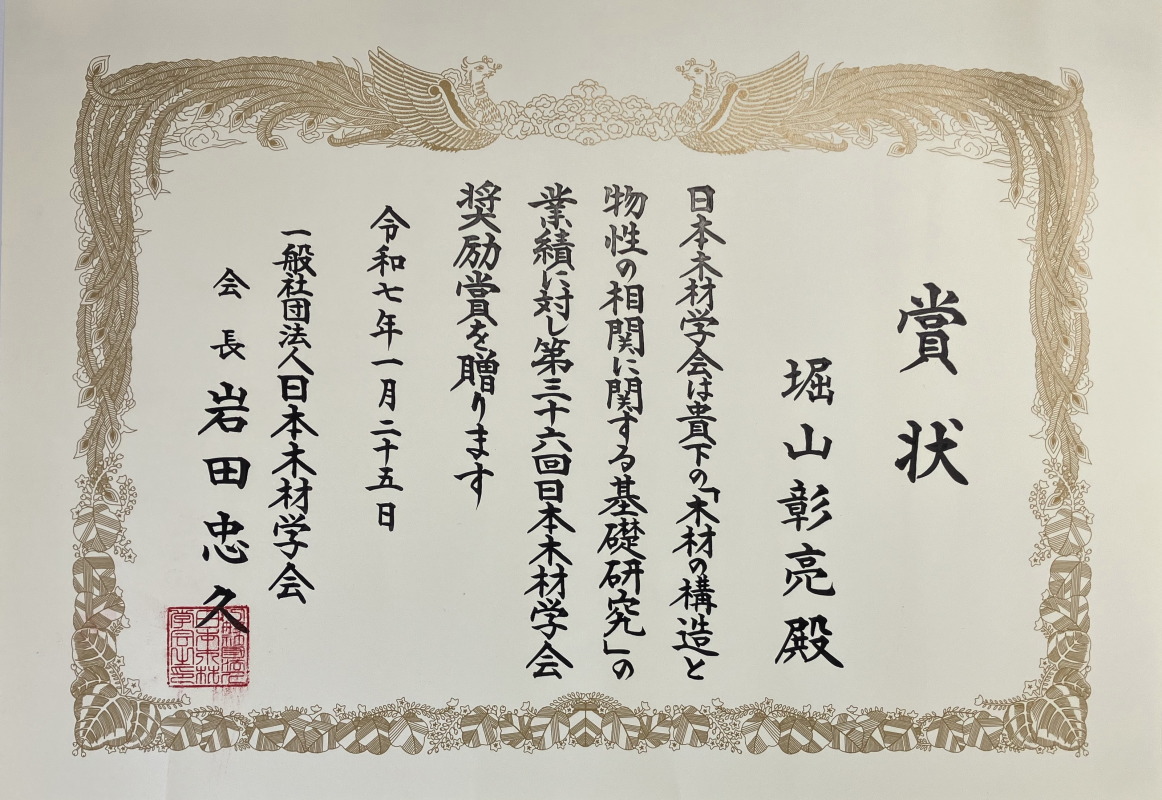 賞状
堀山彰亮殿
日本木材学会は貴下の「木材の構造と
物性の相関に関する基礎研究」の
業績に対し第三十六回日本木材学会
奨励賞を贈ります
令和七年一月二十五日
一般社団法人日本木材学会
会長岩田忠久